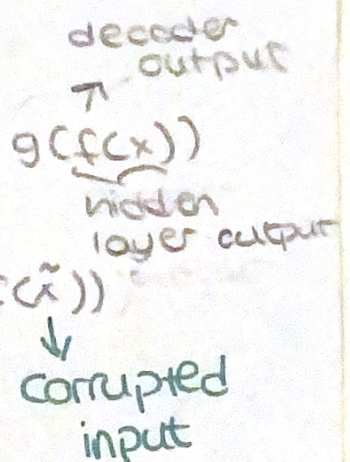 decoder
output
g(f(x))
hidden
layer output
(x̃))
corrupted
input